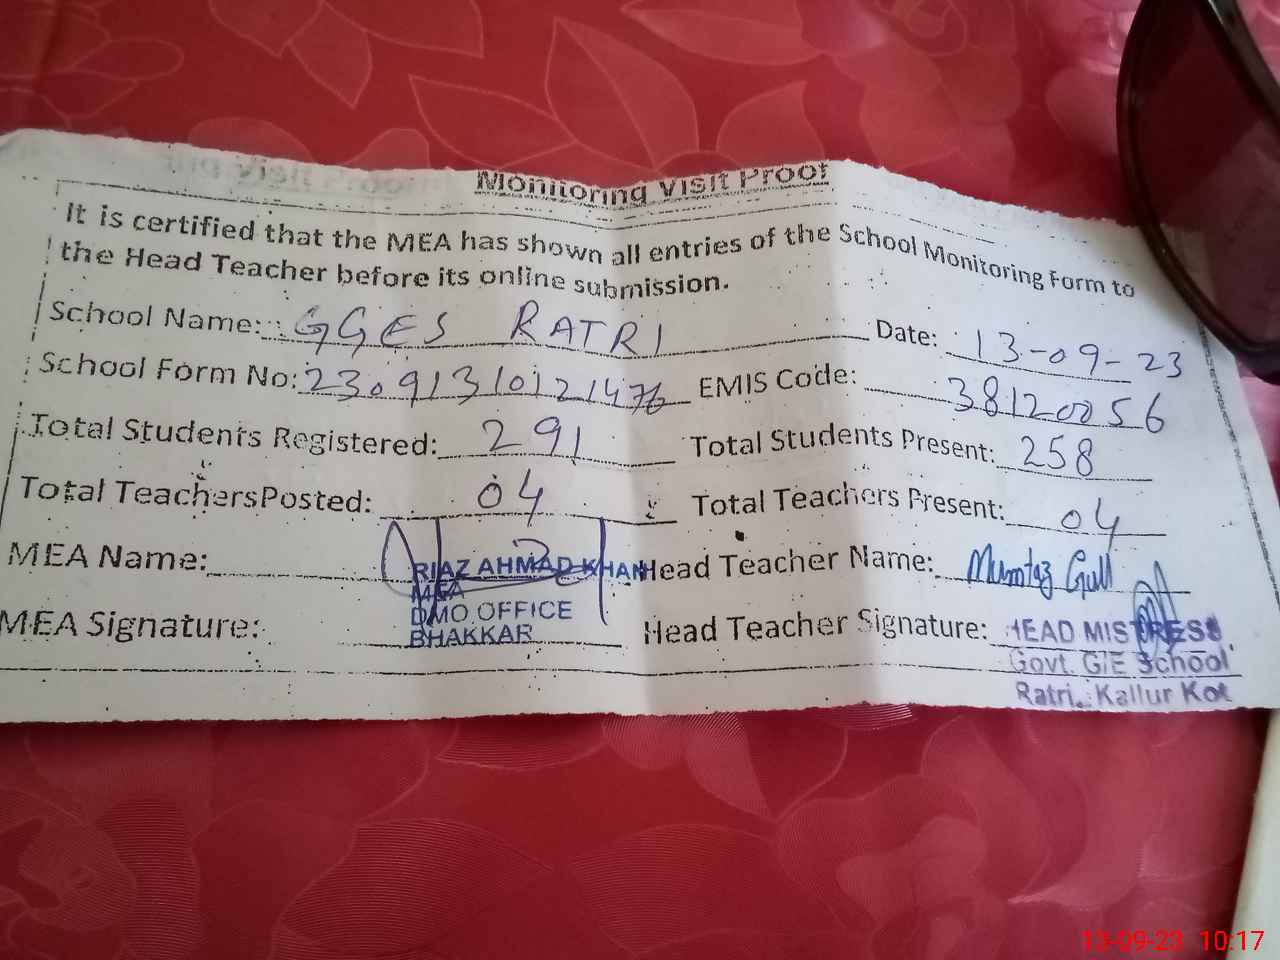 Monitoring Visit Proof
It is certified that the MEA has shown all entries of the School Monitoring Form to
the Head Teacher before its online submission.
School Name: GGES RATRI Date: 13-09-23
School Form No: 23091310121476 EMIS Code: 38120056
Total Students Registered: 291 Total Students Present: 258
Total Teachers Posted: 04 Total Teachers Present: 04
MEA Name: RIAZ AHMAD KHAN Head Teacher Name: Mumtaz Gull
MEA
DMO OFFICE
MEA Signature: BHAKKAR Head Teacher Signature: HEAD MISTRESS
Govt. G/E School
Ratri. Kallur Kot
13-09-23 10:17